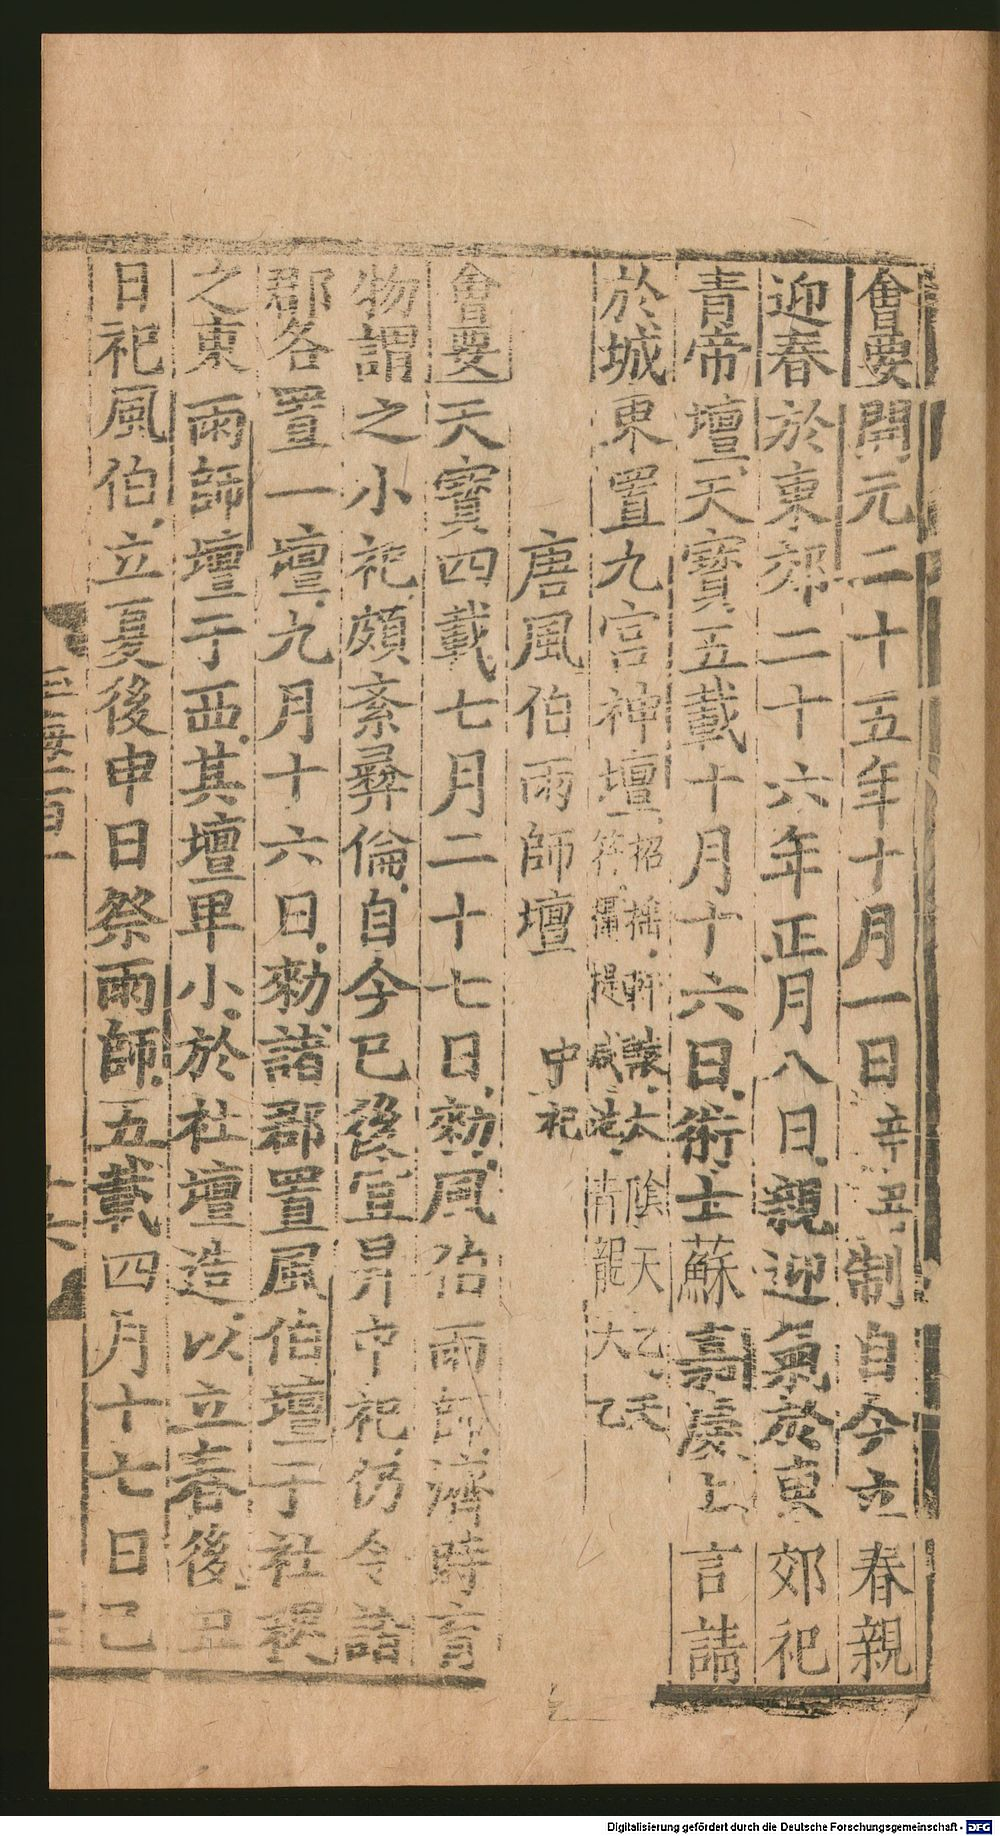 會要開元二十五年十月一日辛丑制自今立春親
迎春於東郊二十六年正月八日親迎氣於東郊祀
青帝壇天寶五載十月十六日術士蘇嘉慶上言請
於城東置九宮神壇招搖軒轅太陰天乙天
符攝提咸池青龍大乙
唐風伯雨師壇 中祀
會要天寶四載七月二十七日勑風伯雨師濟時育
物謂之小祀頗紊彝倫自今已後宜昇中祀仍令諸
郡各置一壇九月十六日勑諸郡置風伯壇于社稷
之東雨師壇于西其壇卑小於社壇造以立春後丑
日祀風伯立夏後申日祭雨師五載四月十七日已
玉海二百一
十六
Digitalisierung gefördert durch die Deutsche Forschungsgemeinschaft - DFG